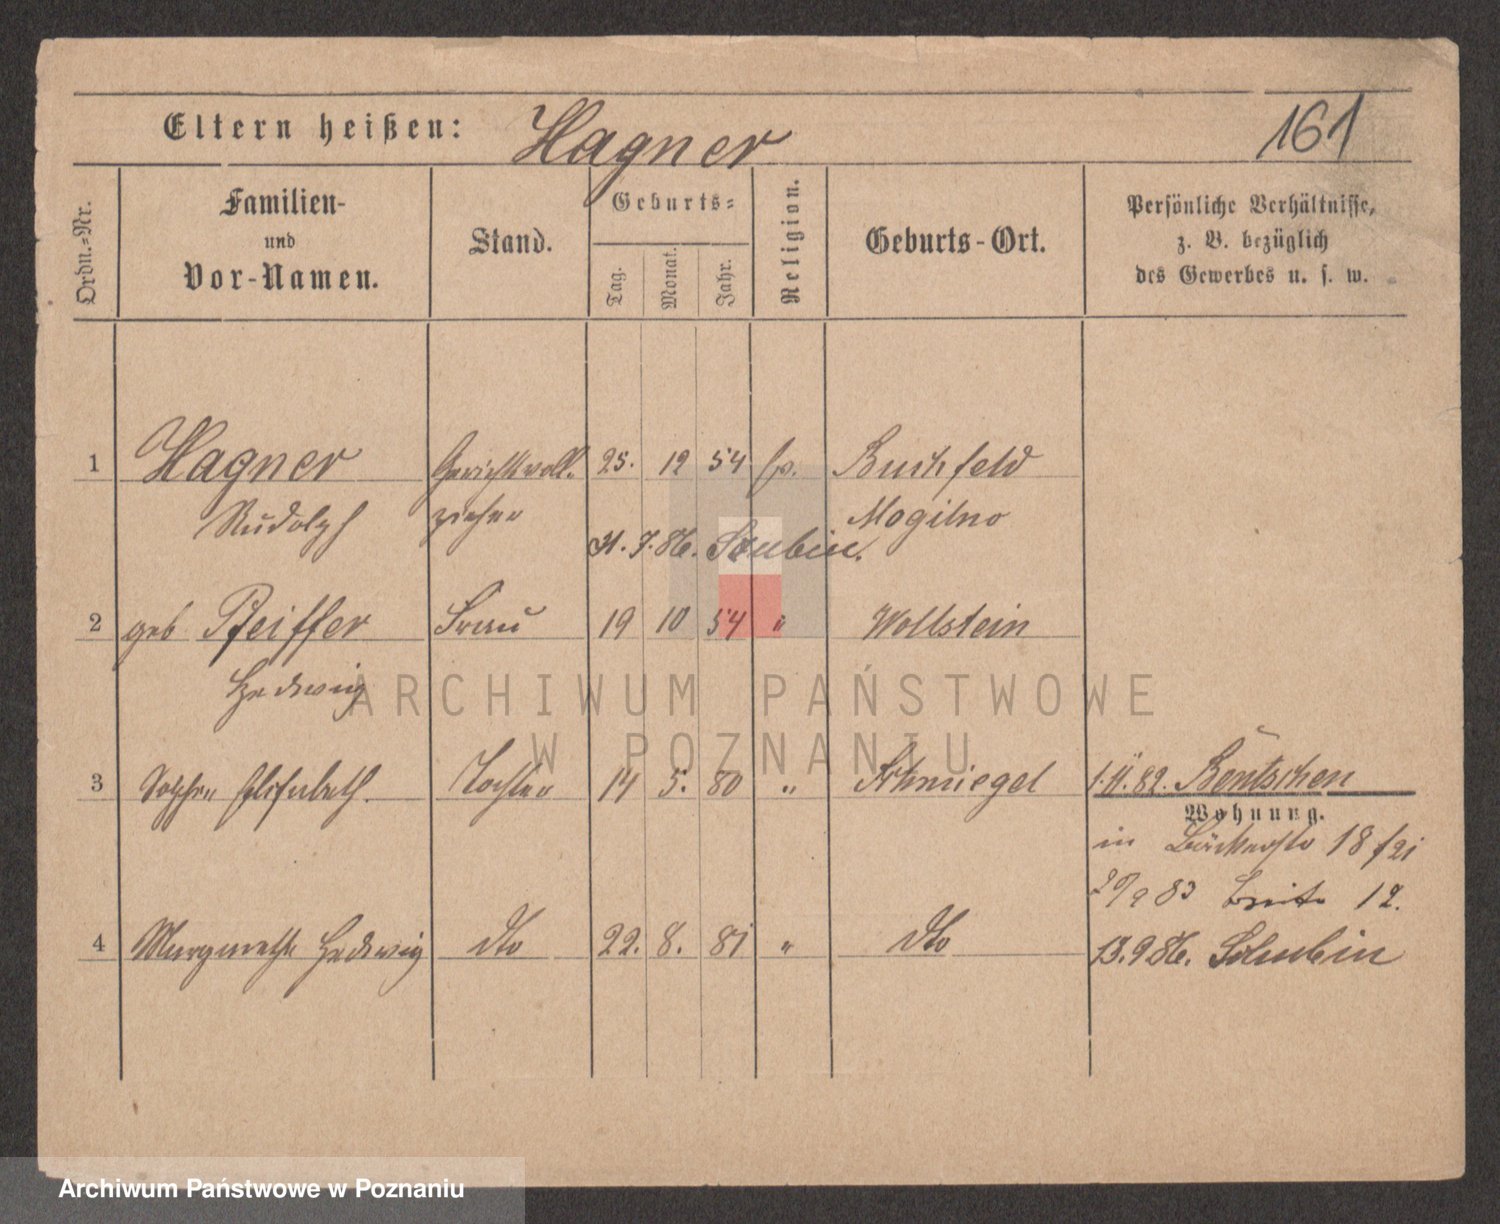 Eltern heißen: Hagner 161
Ordn.-Nr.
Familien-
und
Vor-Namen.
Stand.
Geburts-
Tag. Monat. Jahr.
Religion.
Geburts-Ort.
Persönliche Verhältnisse,
z. B. bezüglich
des Gewerbes u. s. w.
1 Hagner Gerichtsvoll- 25. 12 54 Buchfeld
Rudolph zieher Mogilno
31. 7. 86. Szubin.
2 geb Pfeiffer Frau 19 10 54 " Wollstein
Hedwig
3 Elisabeth. Tochter 14 5. 80 " Schmiegel 1. 11. 82. Bentschen
Wohnung.
in Bäckerstr 18
83 Breite 12.
4 Margarethe Hedwig dto 22. 8. 81 " dto 13. 9 86. Schubin
ARCHIWUM PAŃSTWOWE
W POZNANIU
Archiwum Państwowe w Poznaniu